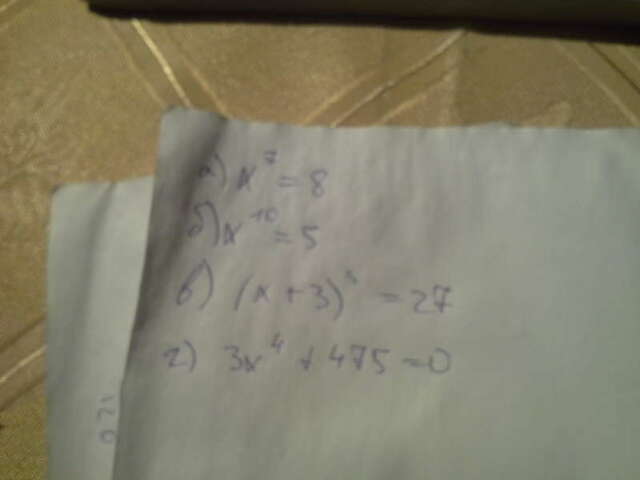 а) x⁷ = 8
б) x¹⁰ = 5
в) (x + 3) = 27
г) 3x⁴ + 475 = 0